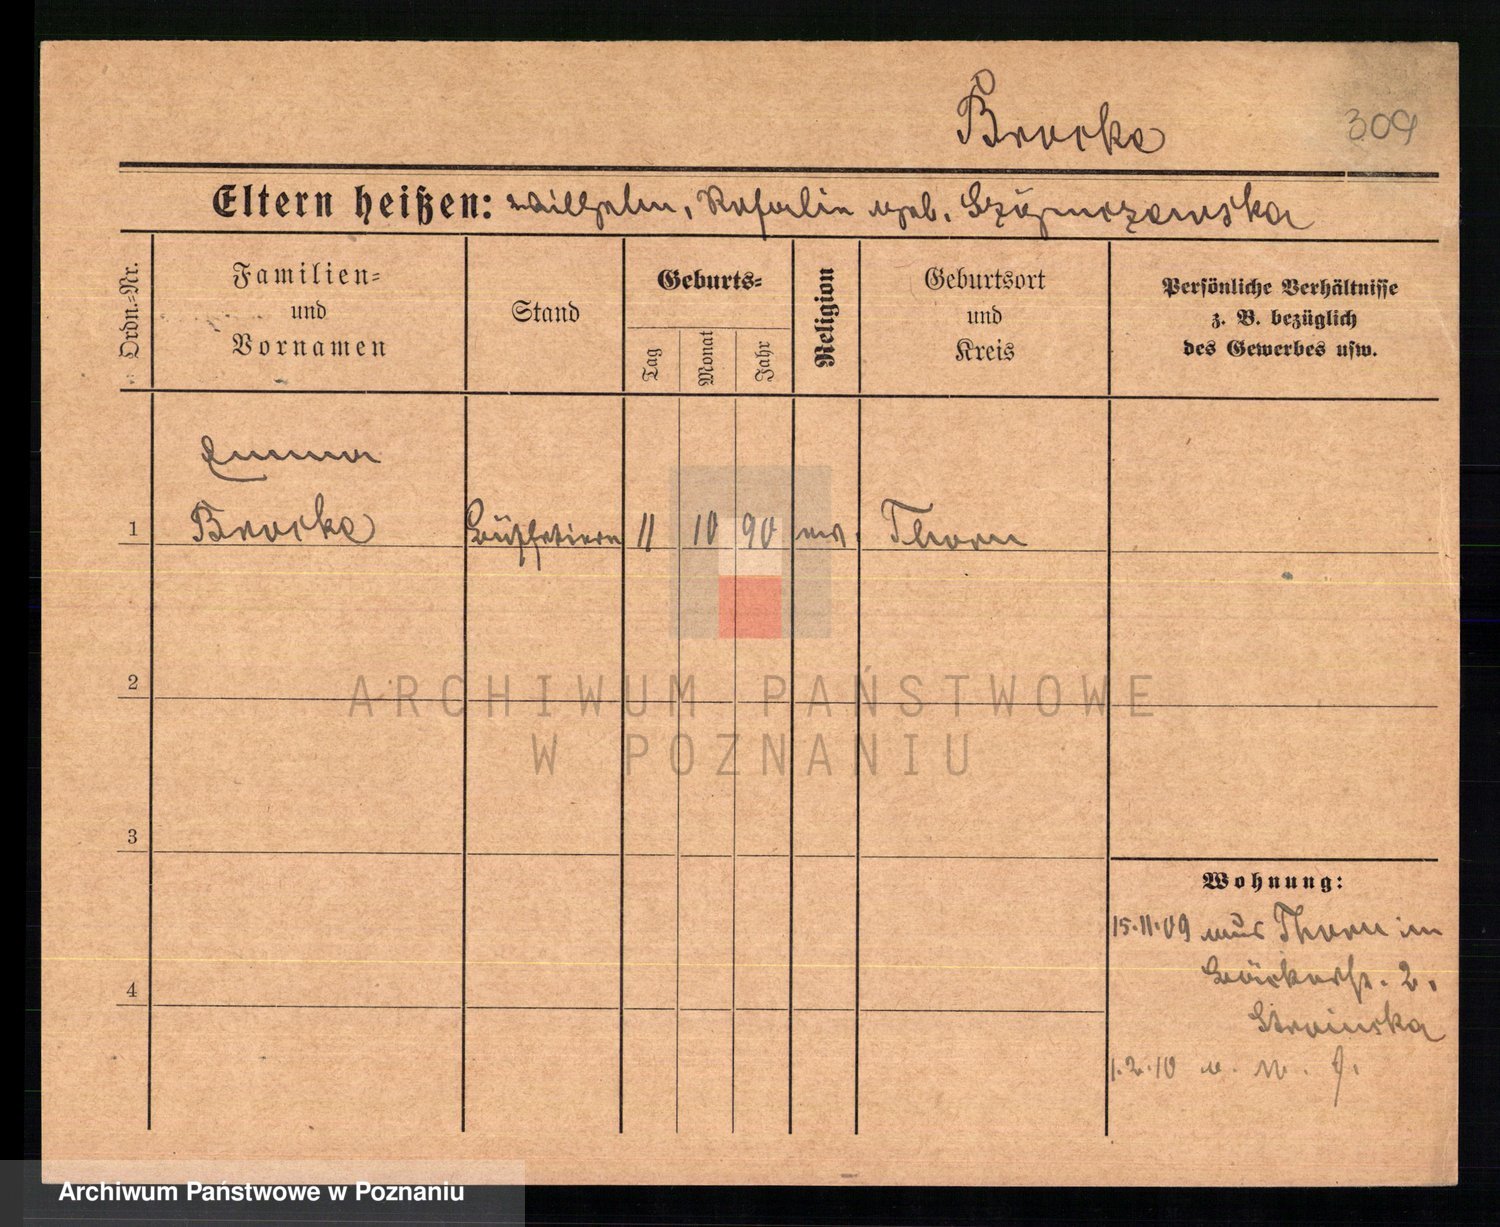 Brocke
309
Eltern heißen: Wilhelm, Rosalie geb.
Ordn.-Nr.
Familien-
und
Vornamen
Stand
Geburts-
Tag
Monat
Jahr
Religion
Geburtsort
und
Kreis
Persönliche Verhältnisse
z. B. bezüglich
des Gewerbes usw.
Emma
1 Brocke Büffetiere 11 10 90 ev. Thorn
2
ARCHIWUM PAŃSTWOWE
W POZNANIU
3
4
Wohnung:
15.11.09 aus Thorn in
Bäckerstr. 2.
Stroinska
1.2.10
Archiwum Państwowe w Poznaniu